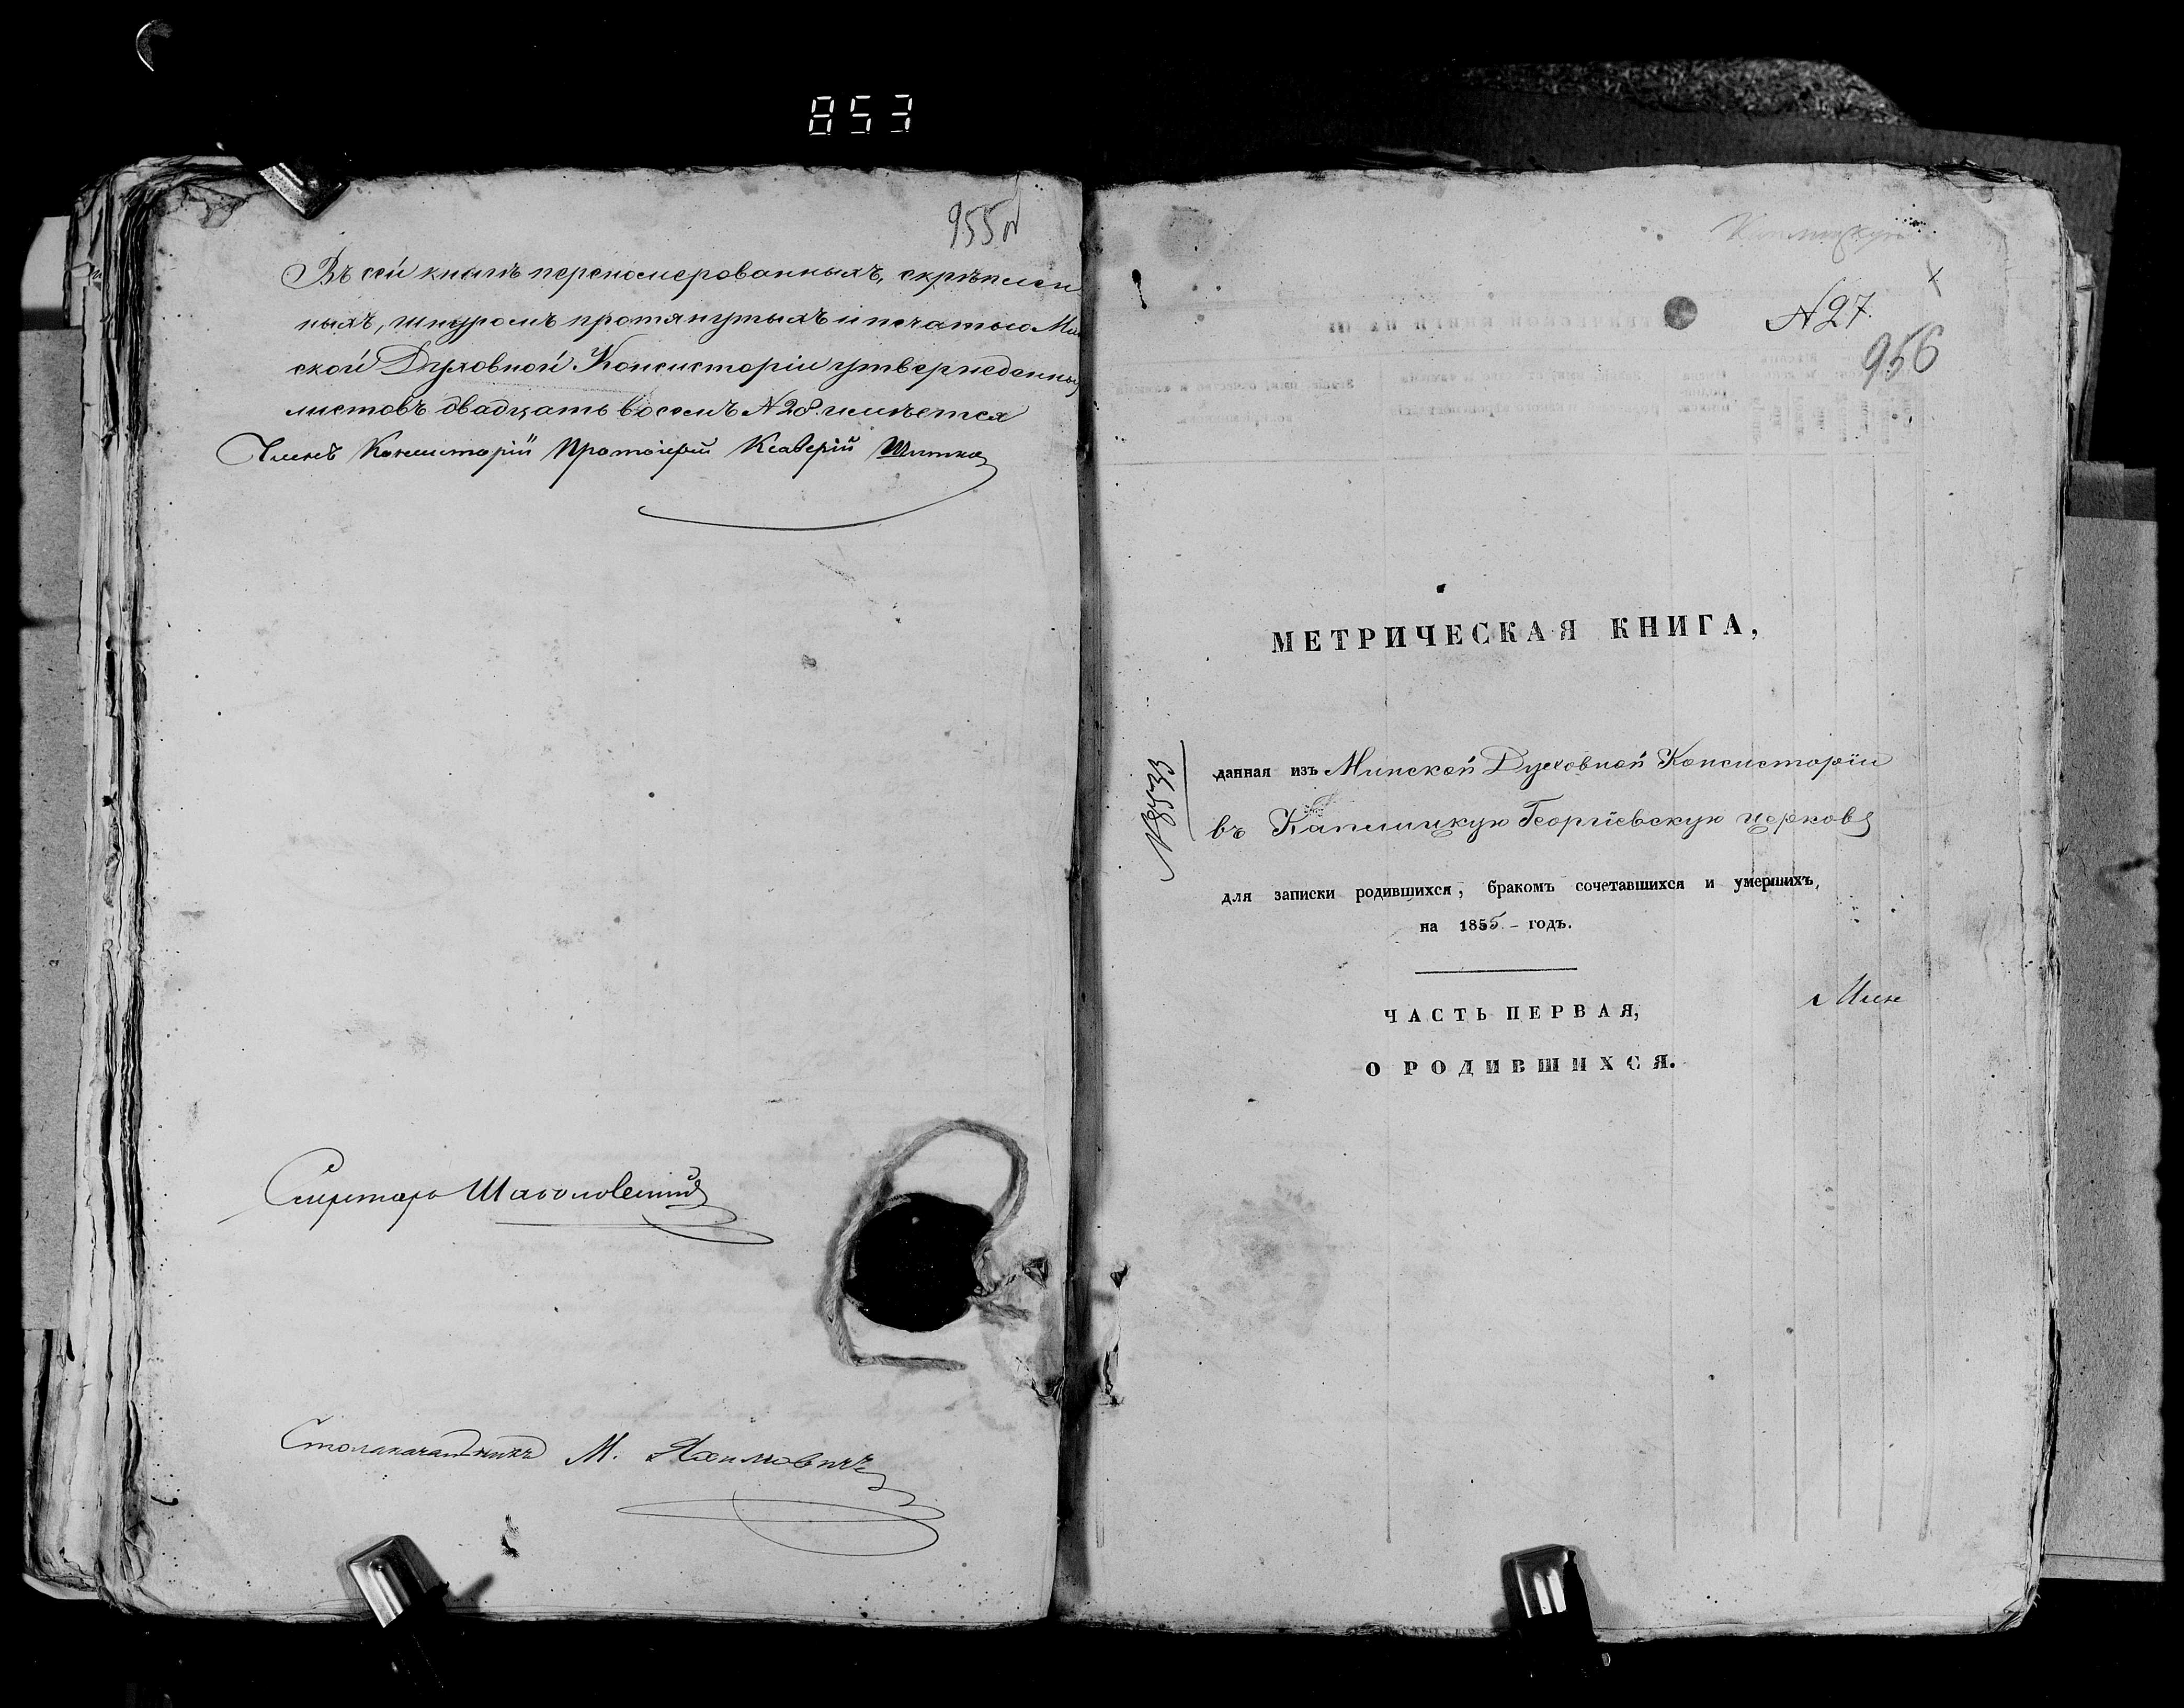 853
955
Въ сей книгѣ перенумерованныхъ, скрѣплен
ныхъ, шнуромъ протянутыхъ и печатью Мин
ской Духовной Консисторіи утвержденныхъ
листовъ двадцать восемь №28. имѣется
Членъ Консисторіи Протоіерей Ксаверій
Секретарь
Столоначальникъ М. Яхимовичъ
№27.
956
МЕТРИЧЕСКАЯ КНИГА,
№8533
данная изъ Минской Духовной Консисторіи
въ Капличкую Георгіевскую церковь
для записки родившихся, бракомъ сочетавшихся и умершихъ,
на 1855 – годъ.
ЧАСТЬ ПЕРВАЯ,
О РОДИВШИХСЯ.